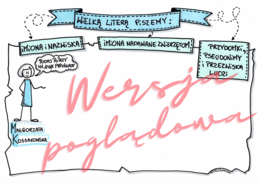 WIELKĄ LITERĄ PISZEMY:
IMIONA I NAZWISKA
IMIONA NADAWANE ZWIERZĘTOM
PRZYDOMKI,
PSEUDONIMY
I PRZEZWISKA
LUDZI
MAŁGORZATA
KOSSAKOWSKA
Wersja
poglądowa